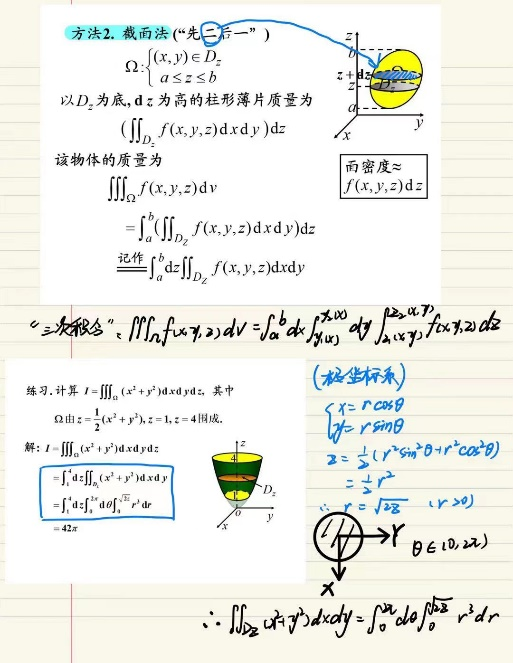 方法2. 截面法 (“先二后一”)
Ω:{(x, y) ∈ D_z
a ≤ z ≤ b
以D_z为底, d z 为高的柱形薄片质量为
(∬_{D_z} f(x, y, z) d x d y) dz
该物体的质量为
∭_Ω f(x, y, z) d v
= ∫_a^b (∬_{D_Z} f(x, y, z) d x d y) dz
记作
= ∫_a^b dz ∬_{D_Z} f(x, y, z) dxdy
z
b
z + dz
z
a
D_z
x
y
面密度≈
f(x, y, z) d z
“三次积分”: ∭_Ω f(x,y,z) dV = ∫_a^b dx ∫_{y₁(x)}^{y₂(x)} dy ∫_{z₁(x,y)}^{z₂(x,y)} f(x,y,z) dz
练习. 计算 I = ∭_Ω (x² + y²) d x d y d z, 其中
Ω由 z = 1/2 (x² + y²), z = 1, z = 4围成.
解: I = ∭_Ω (x² + y²) d x d y d z
= ∫_1^4 d z ∬_{D_z} (x² + y²) d x d y
= ∫_1^4 d z ∫_0^{2π} d θ ∫_0^{√2z} r³ d r
= 42π
z
4
D_z
1
o
x
y
(极坐标系)
{x = r cosθ
y = r sinθ
z = 1/2 (r² sin²θ + r² cos²θ)
= 1/2 r²
∴ r = √2z (r>0)
Y
θ ∈ (0, 2π)
X
∴ ∬_{Dz} (x²+y²) dxdy = ∫_0^{2π} dθ ∫_0^{√2z} r³ dr